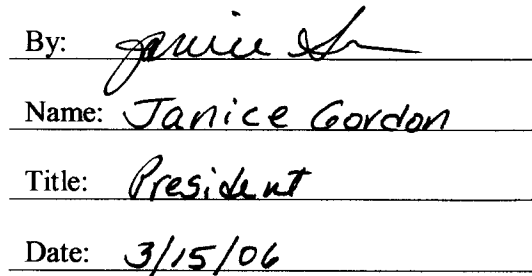 By: Janice
Name: Janice Gordon
Title: President
Date: 3/15/06